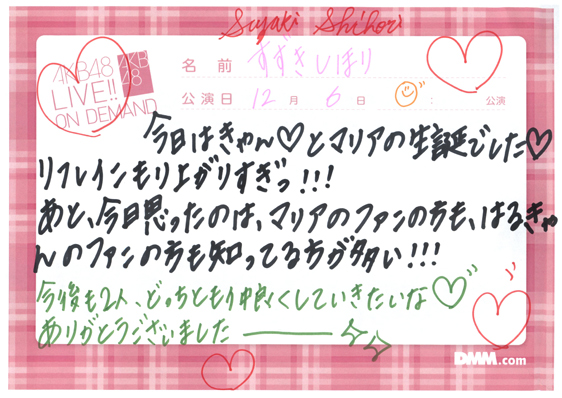 Suzuki Shihori
AKB48
LIVE!!
ON DEMAND
AKB
48
名前 すずきしほり
公演日 12月6日 : 公演
今日はきゃん♡とマリアの生誕でした♡
リフレインもり上がりすぎっ!!!
あと、今日思ったのは、マリアのファンの方も、はるきゃ
んのファンの方も知ってる方が多い!!!
今後も2人、どっちとも仲良くしていきたいな♡
ありがとうございました
DMM.com